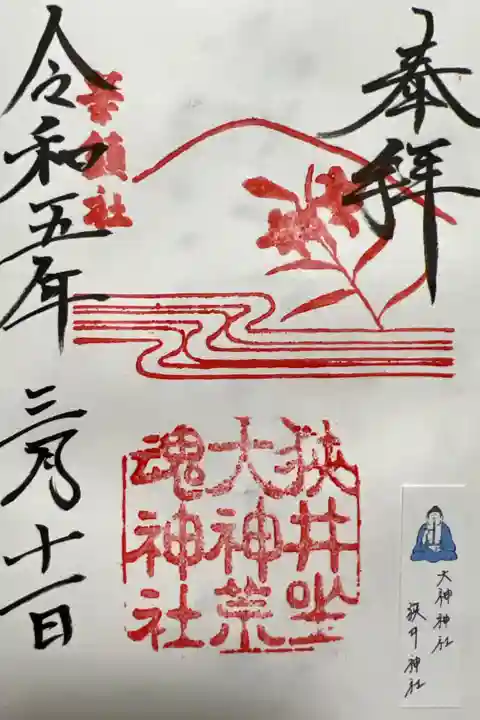 奉拝
華鎮社
狭井坐
大神荒
魂神社
令和五年三月十一日
大神神社
狭井神社